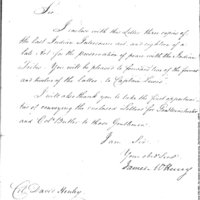 Sir
I enclose with this Letter three copies of
the last Indian Intercourse act, and eighteen of a
late Act for the preservation of peace with the Indian
Tribes. You will be pleased to furnish two of the former
and twelve of the latter to Captain Lewis
I will also thank you to take the first opportunity
of conveying the enclosed Letters for
and Colo. Butler to those Gentlemen.
I am Sir
Your obed Servt
James McHenry
Col. David Henley